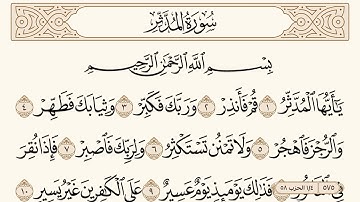 سُورَةُ المُدَّثِّرِ
بِسْمِ اللَّهِ الرَّحْمَٰنِ الرَّحِيمِ
يَا أَيُّهَا الْمُدَّثِّرُ ١ قُمْ فَأَنذِرْ ٢ وَرَبَّكَ فَكَبِّرْ ٣ وَثِيَابَكَ فَطَهِّرْ ٤
وَالرُّجْزَ فَاهْجُرْ ٥ وَلَا تَمْنُن تَسْتَكْثِرُ ٦ وَلِرَبِّكَ فَاصْبِرْ ٧ فَإِذَا نُقِرَ
فِي النَّاقُورِ ٨ فَذَٰلِكَ يَوْمَئِذٍ يَوْمٌ عَسِيرٌ ٩ عَلَى الْكَافِرِينَ غَيْرُ يَسِيرٍ ١٠
١/٤ الحزب ٥٨
٥٧٥